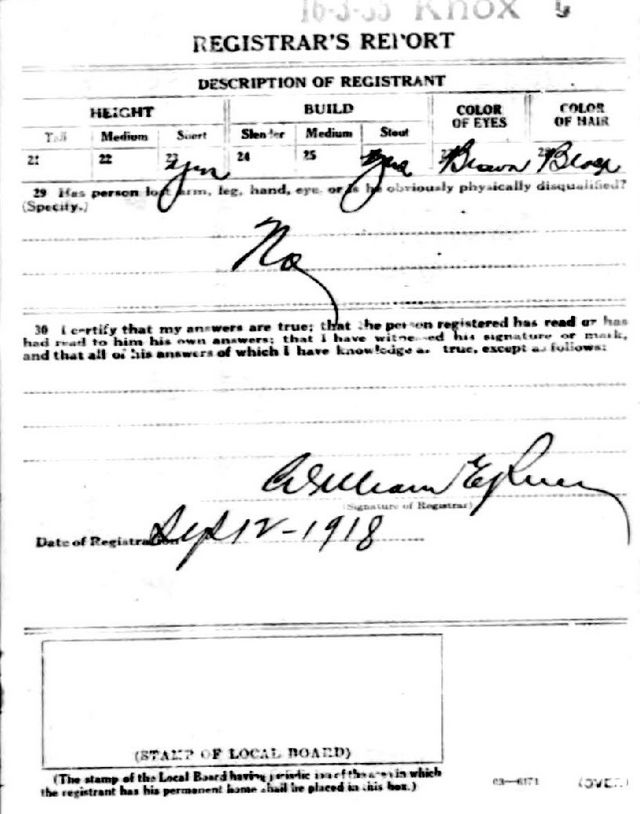 16-3-33 Knox C
REGISTRAR'S REPORT
DESCRIPTION OF REGISTRANT
HEIGHT BUILD COLOR OF EYES COLOR OF HAIR
Tall Medium Short Slender Medium Stout
21 22 23 Yes 24 25 Yes 27 Brown 28 Black
29 Has person lost arm, leg, hand, eye, or is he obviously physically disqualified?
(Specify.)
No
30 I certify that my answers are true; that the person registered has read or has
had read to him his own answers; that I have witnessed his signature or mark,
and that all of his answers of which I have knowledge are true, except as follows:
William
(Signature of Registrar)
Date of Registration Sep 12-1918
(STAMP OF LOCAL BOARD)
(The stamp of the Local Board having jurisdiction of the area in which
the registrant has his permanent home shall be placed in this box.)
03—6171 (OVER)